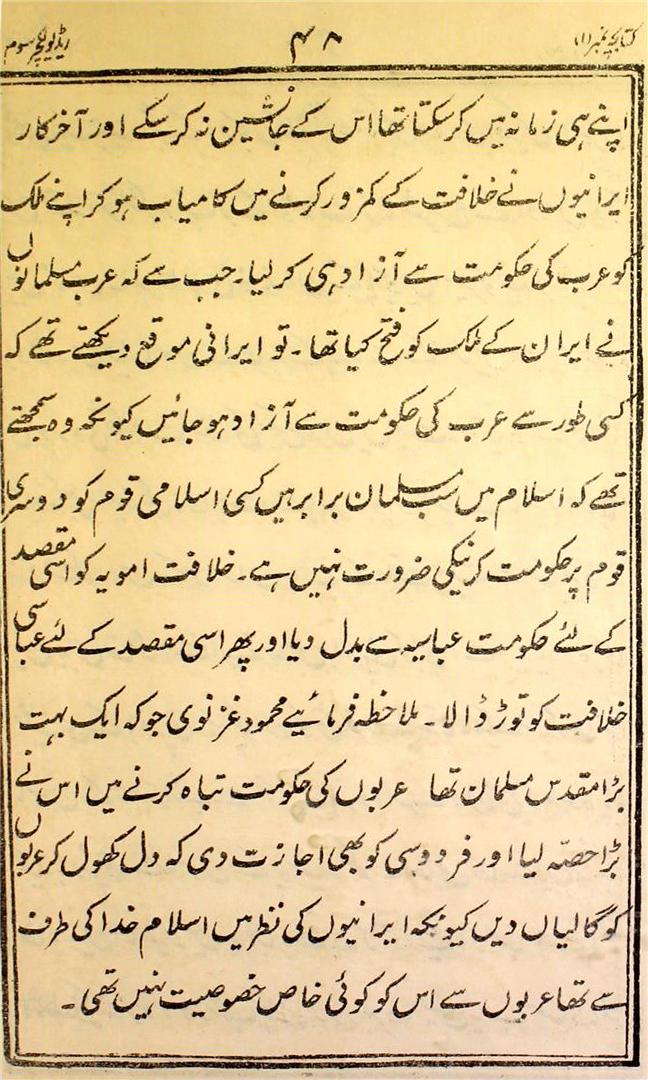 کتابچہ نمبر(۱) ۴۸ ریڈیو لکچر سوم
اپنے ہی زمانہ میں کر سکتا تھا اس کے جانشین نہ کر سکے اور آخر کار
ایرانیوں نے خلافت کے کمزور کرنے میں کامیاب ہو کر اپنے ملک
کو عرب کی حکومت سے آزاد ہی کر لیا۔ جب سے کہ عرب مسلمانوں
نے ایران کے ملک کو فتح کیا تھا۔ تو ایرانی موقع دیکھتے تھے کہ
کسی طور سے عرب کی حکومت سے آزاد ہو جائیں کیونکہ وہ سمجھتے
تھے کہ اسلام میں سب مسلمان برابر ہیں کسی اسلامی قوم کو دوسری
قوم پر حکومت کرنیکی ضرورت نہیں ہے۔ خلافت امویہ کو اسی مقصد
کے لئے حکومت عباسیہ سے بدل دیا اور پھر اسی مقصد کے لئے عباسی
خلافت کو توڑ ڈالا۔ ملاحظہ فرمائیے محمود غزنوی جو کہ ایک بہت
بڑا مقدس مسلمان تھا عربوں کی حکومت تباہ کرنے میں اس نے
بڑا حصّہ لیا اور فردوسی کو بھی اجازت دی کہ دل کھول کر عربوں
کو گالیاں دیں کیونکہ ایرانیوں کی نظر میں اسلام خدا کی طرف
سے تھا عربوں سے اس کو کوئی خاص خصوصیت نہیں تھی۔